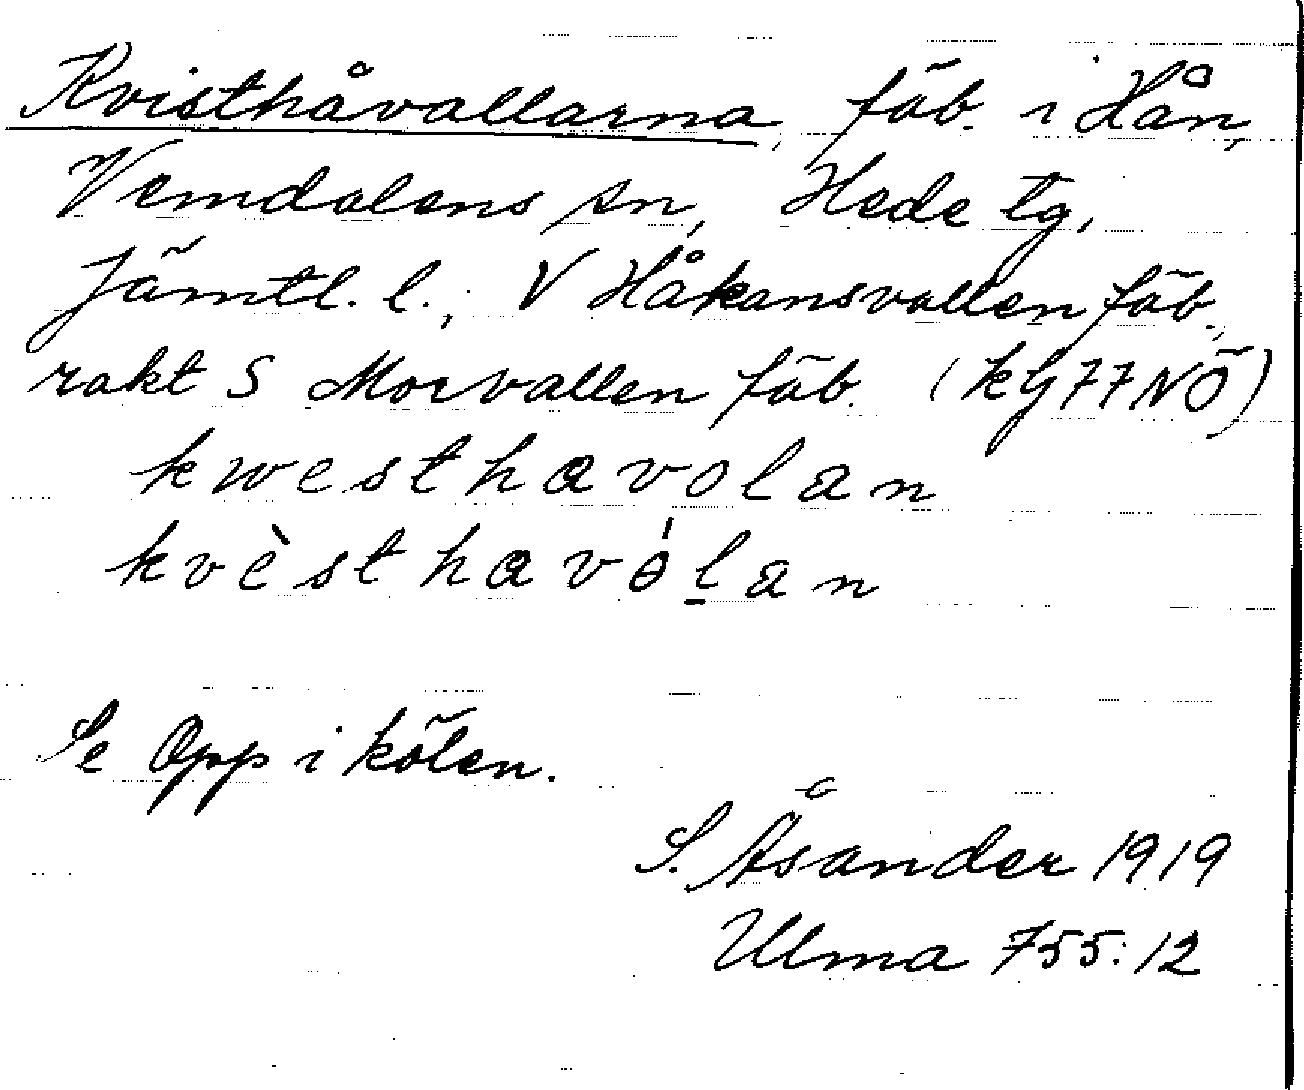 Kvisthåvallarna, fäb. i Hån,
Vemdalens sn, Hede tg,
Jämtl. l., V Håkansvallen fäb.,
rakt S Morvallen fäb. (kg 77 NÖ)
kwesthavolan
kvèsthavólan
Se Opp i kölen.
S. Åsander 1919
Ulma 755:12